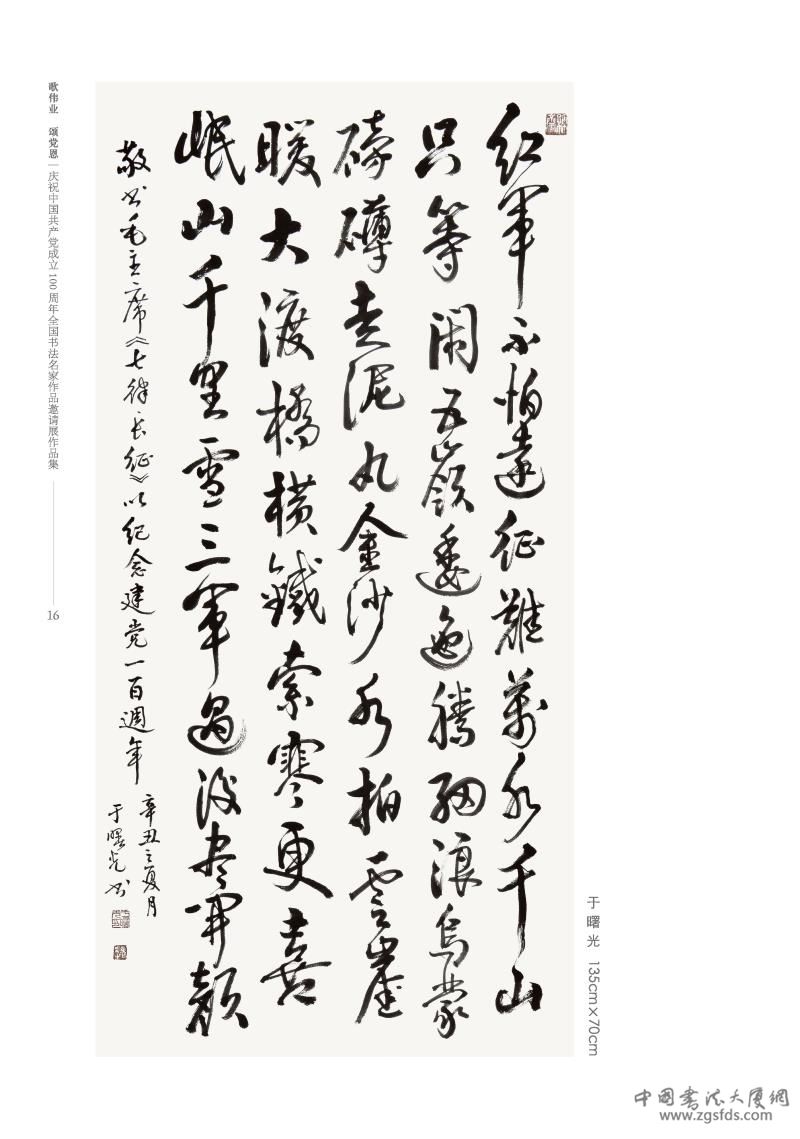 紅軍不怕遠征難萬水千山
只等閑五嶺逶迤騰細浪烏蒙
磅礴走泥丸金沙水拍雲崖
暖大渡橋橫鐵索寒更喜
岷山千里雪三軍過後盡開顏
敬书毛主席《七律长征》以纪念建党一百週年
辛丑之夏月
于曙光书
歌伟业 颂党恩 | 庆祝中国共产党成立100周年全国书法名家作品邀请展作品集
16
于曙光 135cm×70cm
中国书法大厦網
www.zgsfds.com